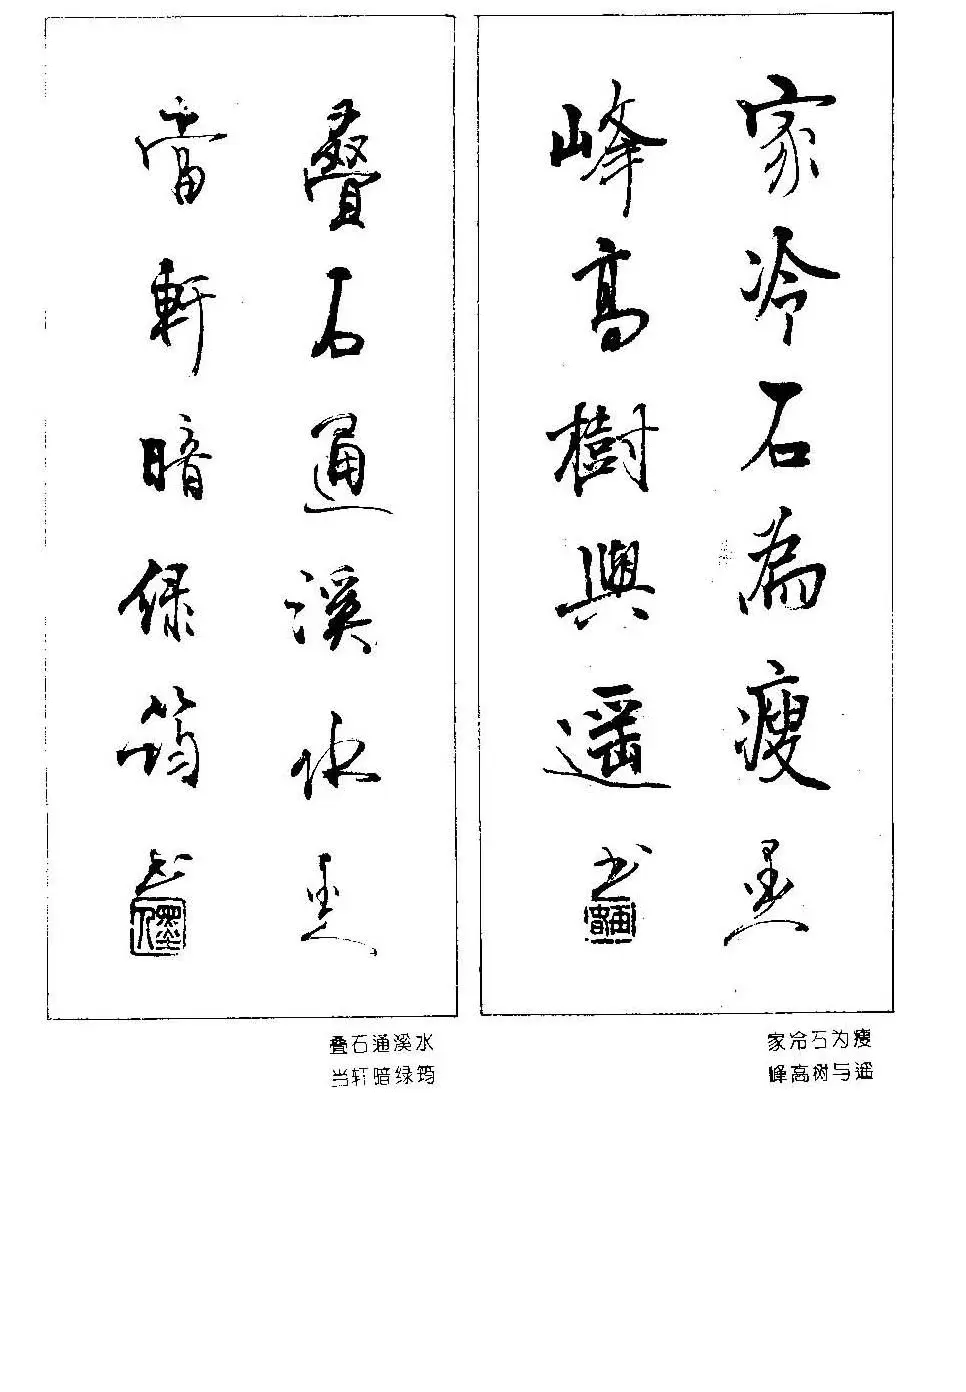 家冷石為瘦
墨人
峰高樹與遥
书
叠石通溪水
墨人
當軒暗绿筠
书
家冷石为瘦
峰高树与遥
叠石通溪水
当轩暗绿筠